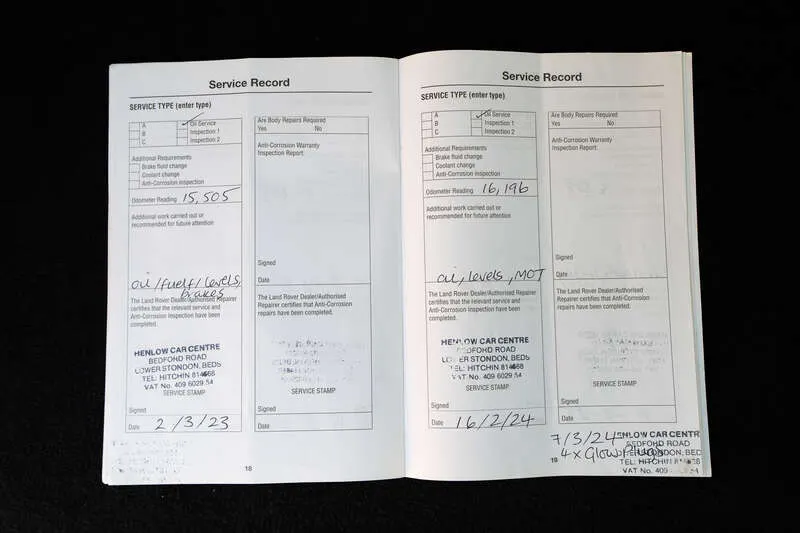 Service Record
SERVICE TYPE (enter type)
A Oil Service
B Inspection 1
C Inspection 2
Additional Requirements
Brake fluid change
Coolant change
Anti-Corrosion Inspection
Odometer Reading 15,505
Additional work carried out or
recommended for future attention
oil/fuelf/levels,
brakes
The Land Rover Dealer/Authorised Repairer
certifies that the relevant service and
Anti-Corrosion Inspection have been
completed.
HENLOW CAR CENTRE
BEDFORD ROAD
LOWER STONDON, BEDS
TEL: HITCHIN 814668
VAT No. 409 6029 54
SERVICE STAMP
Signed
Date 2/3/23
Are Body Repairs Required
Yes No
Anti-Corrosion Warranty
Inspection Report
Signed
Date
The Land Rover Dealer/Authorised
Repairer certifies that Anti-Corrosion
repairs have been completed.
SERVICE STAMP
Signed
Date
18
Service Record
SERVICE TYPE (enter type)
A Oil Service
B Inspection 1
C Inspection 2
Additional Requirements
Brake fluid change
Coolant change
Anti-Corrosion Inspection
Odometer Reading 16,196
Additional work carried out or
recommended for future attention
oil, levels, MOT
The Land Rover Dealer/Authorised Repairer
certifies that the relevant service and
Anti-Corrosion Inspection have been
completed.
HENLOW CAR CENTRE
BEDFORD ROAD
LOWER STONDON, BEDS
TEL: HITCHIN 814668
VAT No. 409 6029 54
SERVICE STAMP
Signed
Date 16/2/24
Are Body Repairs Required
Yes No
Anti-Corrosion Warranty
Inspection Report
Signed
Date
The Land Rover Dealer/Authorised
Repairer certifies that Anti-Corrosion
repairs have been completed.
SERVICE STAMP
Signed
Date
7/3/24
4x Glow Plugs
HENLOW CAR CENTR
BEDFORD ROAD
STONDON, BED
TEL: HITCHIN
VAT No. 409
19